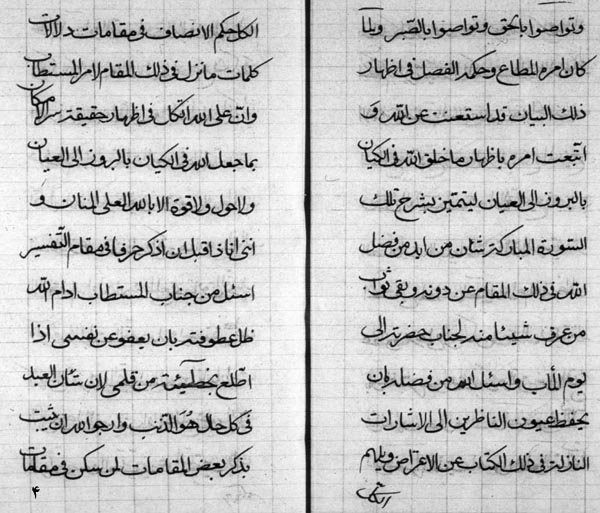 وتواصوا بالحق وتواصوا بالصّبر ولمّا
كان امره المطاع وحكمه الفصل فى اظهار
ذلك البيان قد استعنت عن الله و
اتّبعت امره باظهار ما خلق الله فى الكيان
بالبروز الى العيان ليتمتين بشرح تلك
السّورة المباركة شان من ابد من فضل
الله فى ذلك المقام عن دونه ويبقى ثواب
من عرف شيئا منه لجناب حضرته الى
يوم المآب واسئل الله من فضله بان
يحفظ عيون الناظرين الى الاشارات
النازلة فى ذلك الكتاب عن الاعراض ويلهم
الكلّ
الكل حكم الانصاف فى مقامات دلالات
كلمات ما نزل فى ذلك المقام لامر المستطاب
وانّ على الله اتّكل فى اظهار حقيقة سرّ الامكان
بما جعل الله فى الكيان بالبروز الى العيان
ولا حول ولا قوة الا بالله العلى المنان و
اننى انا ذا قبل ان اذكر حرفا فى مقام التّفسير
اسئل من جناب المستطاب ادام الله
ظل عطوفته بان يعفو عن نفسى اذا
اطّلع بخطيئة من قلمى لان شان العبد
فى كل حال هو الذنب وارجو الله ان يثبت
بذكر بعض المقامات لمن سكن فى مقامات
۴